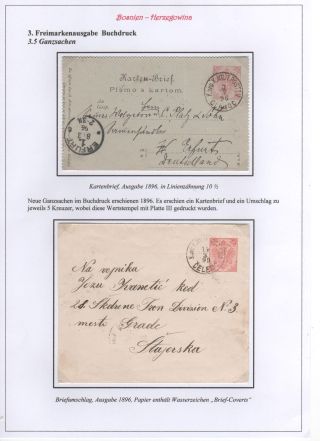 Bosnien – Herzegowina
3. Freimarkenausgabe Buchdruck
3.5 Ganzsachen
Karten-Brief.
Pismo s kartom.
Herrn
in Erfurt
Deutschland
ERFURT
Kartenbrief, Ausgabe 1896, in Linienzähnung 10 ½
Neue Ganzsachen im Buchdruck erschienen 1896. Es erschien ein Kartenbrief und ein Umschlag zu
jeweils 5 Kreuzer, wobei diese Wertstempel mit Platte III gedruckt wurden.
Na vojnika
Jozu
Tren Division N 3
mesto Gradc
Štajerska
Briefumschlag, Ausgabe 1896, Papier enthält Wasserzeichen „Brief-Coverts"